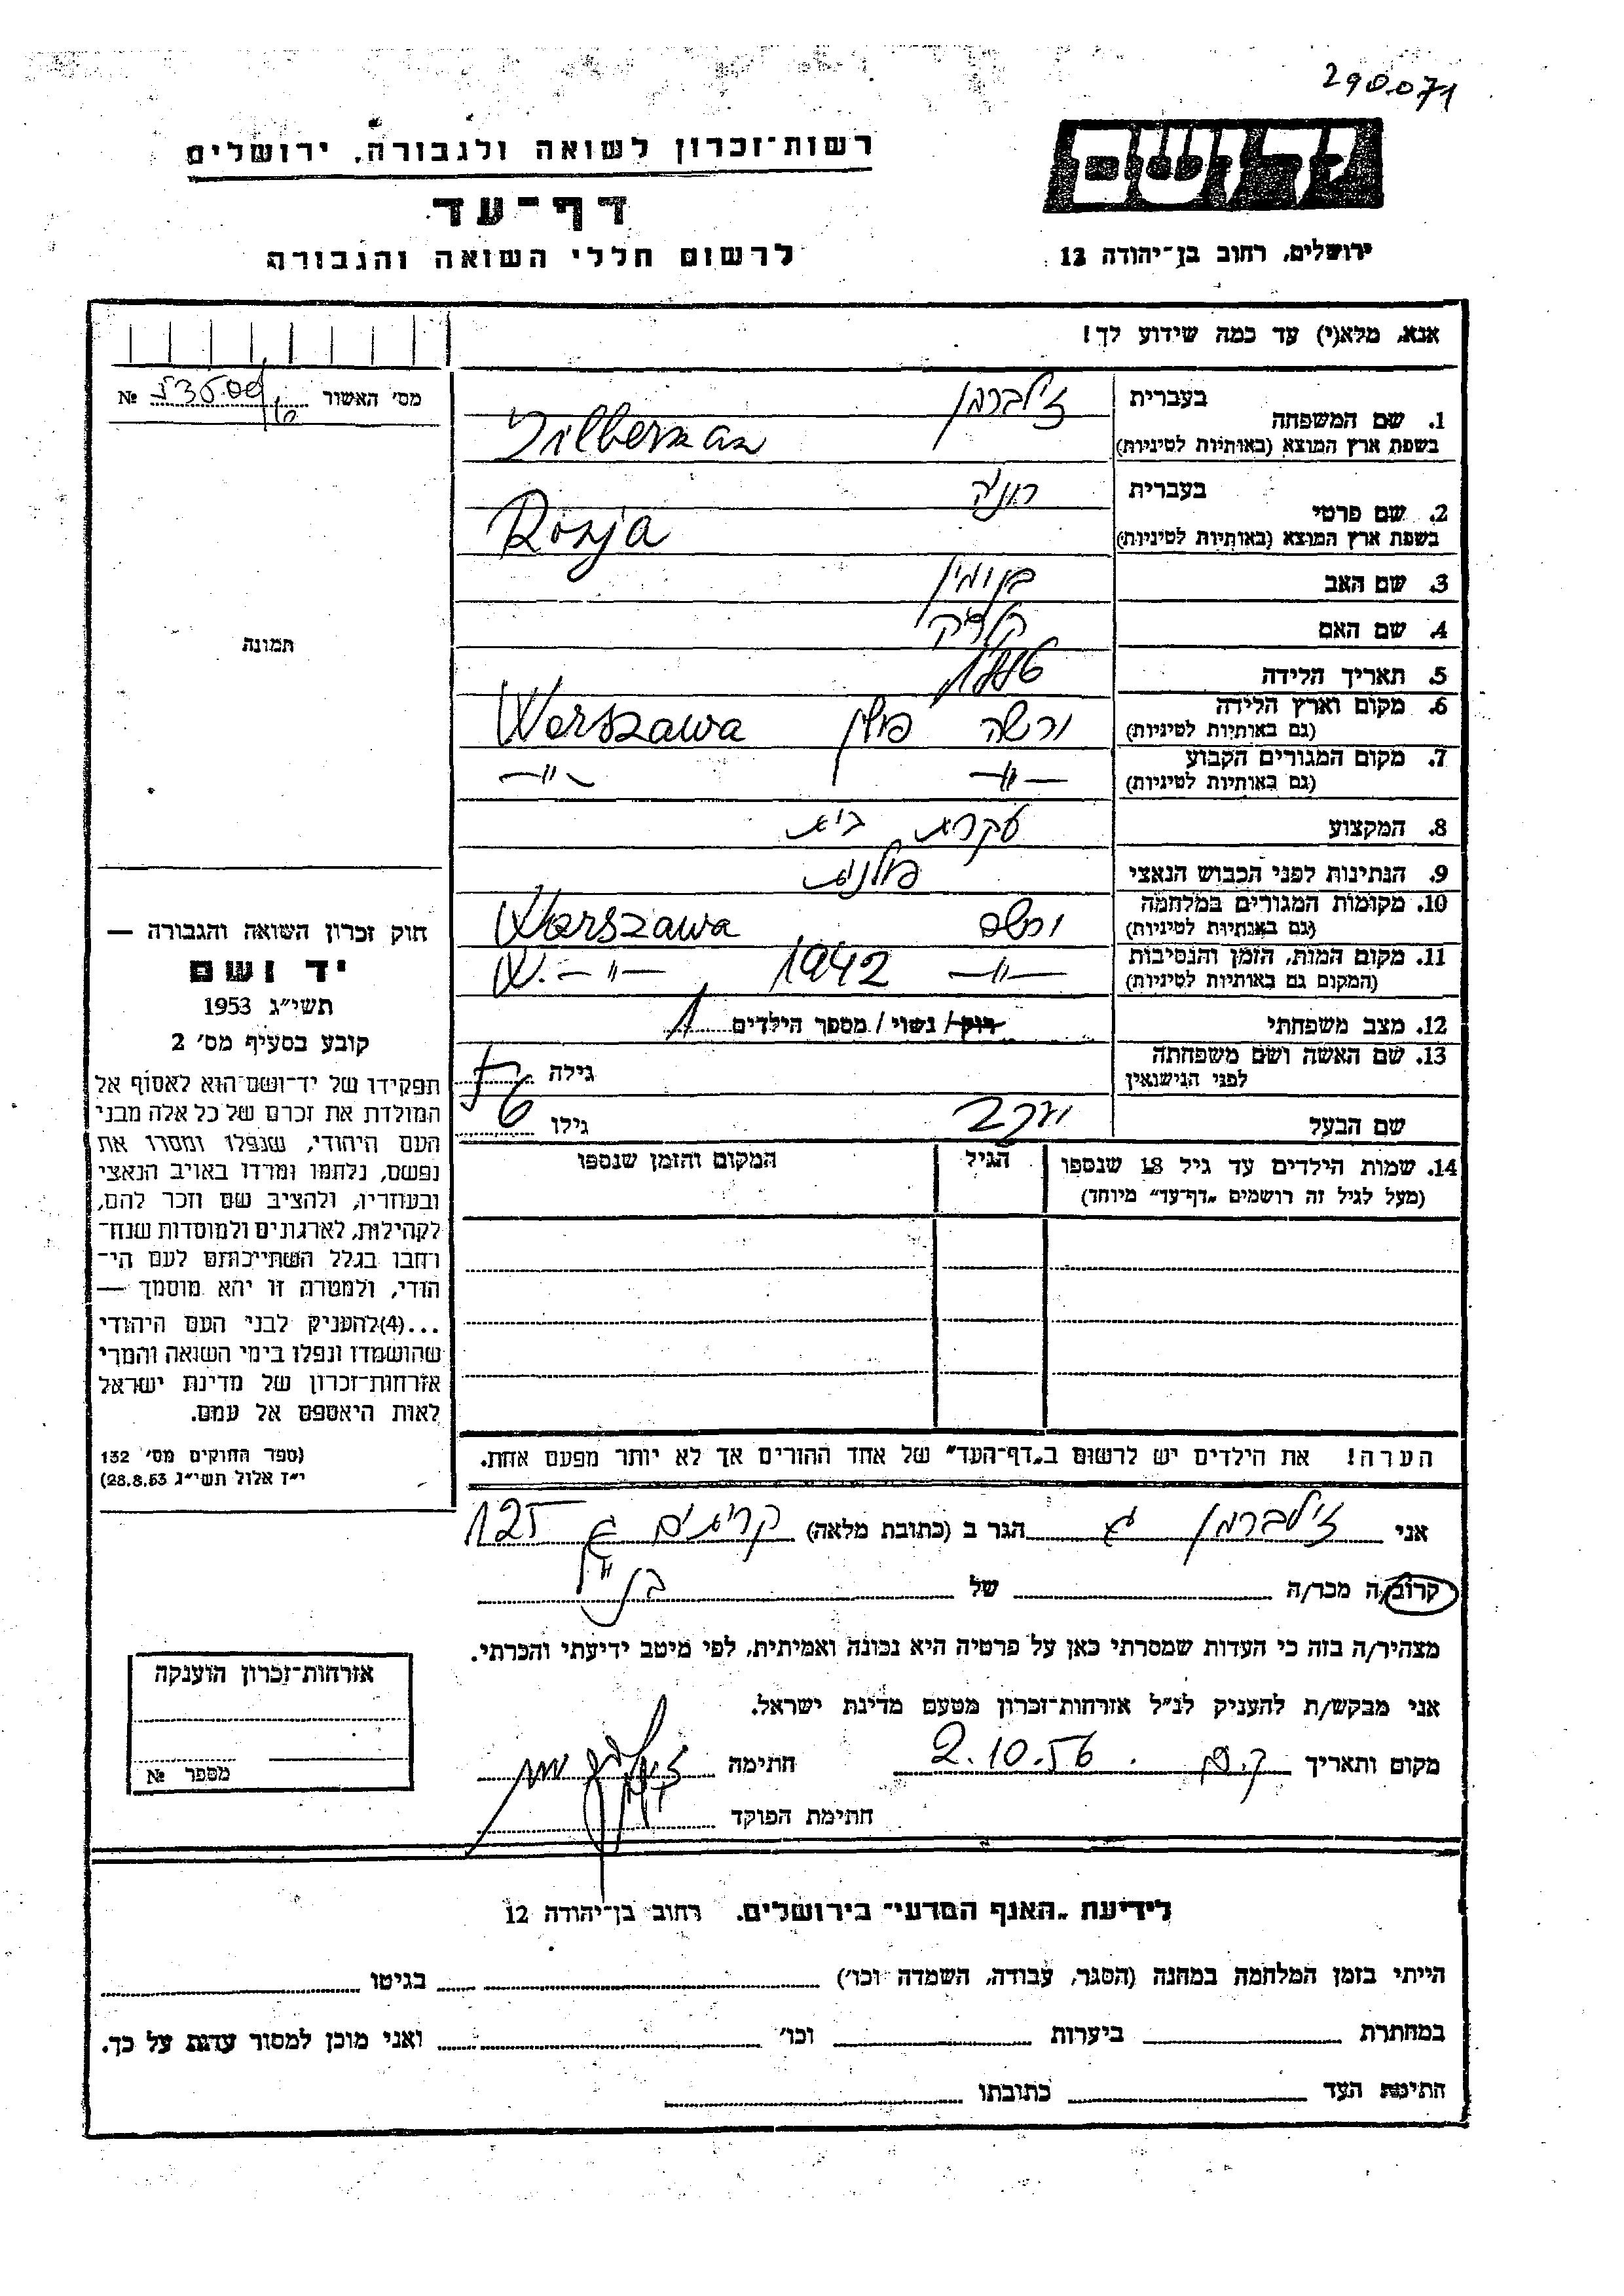 290071
יד ושם
רשות־זכרון לשואה ולגבורה, ירושלים
דף־עד
לרשום חללי השואה והגבורה
ירושלים, רחוב בן־יהודה 12
אנא, מלא(י) עד כמה שידוע לך!
מס׳ האשור №
1. שם המשפחה
בעברית זילברמן
בשפת ארץ המוצא (באותיות לטיניות) Zilberman
2. שם פרטי
בעברית רוניה
בשפת ארץ המוצא (באותיות לטיניות) Ronja
3. שם האב בנימין
4. שם האם
5. תאריך הלידה 1886
6. מקום וארץ הלידה ורשה פולין Warszawa
(גם באותיות לטיניות)
7. מקום המגורים הקבוע —״— —״—
(גם באותיות לטיניות)
8. המקצוע עקרת בית
9. הנתינות לפני הכבוש הנאצי פולנית
10. מקומות המגורים במלחמה ורשה Warszawa
(גם באותיות לטיניות)
11. מקום המות, הזמן והנסיבות —״— 1942 W. —״—
(המקום גם באותיות לטיניות)
12. מצב משפחתי רוק / נשוי / מספר הילדים 1
13. שם האשה ושם משפחתה
לפני הנישואין
גילה 56
שם הבעל יעקב גילו
14. שמות הילדים עד גיל 18 שנספו
(מעל לגיל זה רושמים „דף־עד״ מיוחד)
הגיל
המקום והזמן שנספו
הערה! את הילדים יש לרשום ב„דף־העד״ של אחד ההורים אך לא יותר מפעם אחת.
תמונה
חוק זכרון השואה והגבורה —
יד ושם
תשי״ג 1953
קובע בסעיף מס׳ 2
תפקידו של יד־ושם הוא לאסוף אל
המולדת את זכרם של כל אלה מבני
העם היהודי, שנפלו ומסרו את
נפשם, נלחמו ומרדו באויב הנאצי
ובעוזריו, ולהציב שם וזכר להם,
לקהילות, לארגונים ולמוסדות שנח־
רחבו בגלל השתייכותם לעם הי־
הודי, ולמטרה זו יהא מוסמך —
...(4)להעניק לבני העם היהודי
שהושמדו ונפלו בימי השואה והמרי
אזרחות־זכרון של מדינת ישראל
לאות היאספם אל עמם.
(ספר החוקים מס׳ 132
י״ז אלול תשי״ג 28.8.53)
אני זילברמן ג הגר ב (כתובת מלאה) קריתים ג 125
קרוב/ה מכר/ה של בן
מצהיר/ה בזה כי העדות שמסרתי כאן על פרטיה היא נכונה ואמיתית, לפי מיטב ידיעתי והכרתי.
אני מבקש/ת להעניק לנ״ל אזרחות־זכרון מטעם מדינת ישראל.
מקום ותאריך 2.10.56 חתימה
חתימת הפוקד
אזרחות־זכרון הוענקה
מספר №
לידיעת „האגף המדעי״ בירושלים. רחוב בן־יהודה 12
הייתי בזמן המלחמה במחנה (הסגר, עבודה, השמדה וכו׳) בגיטו
במחתרת ביערות וכו׳ ואני מוכן למסור עדות על כך.
חתימת העד כתובתו